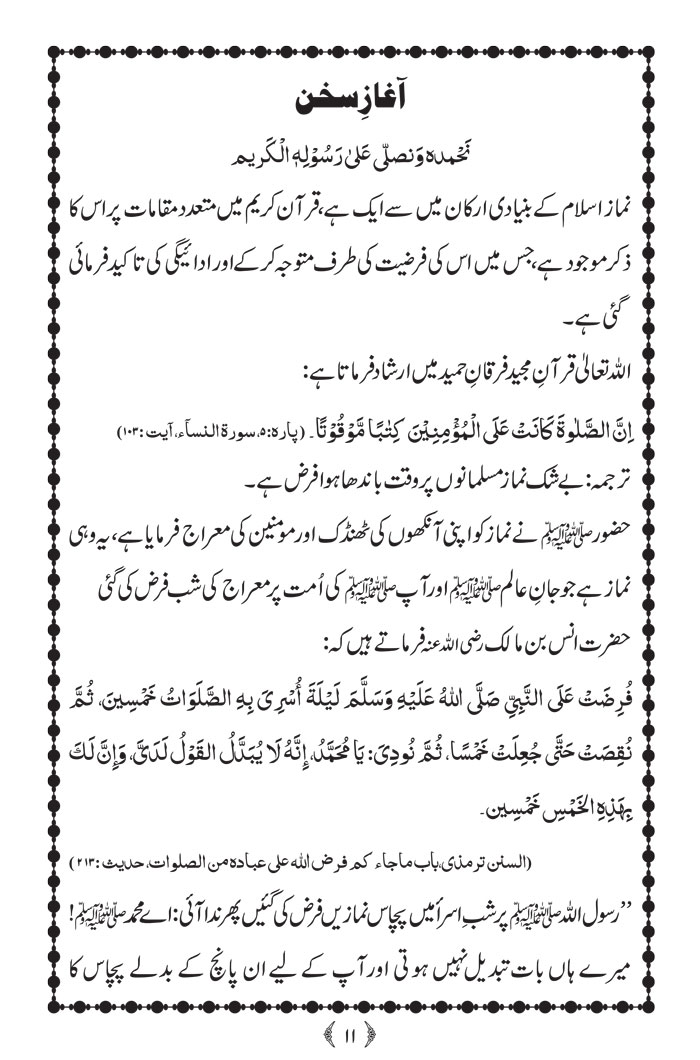 آغازِ سخن
نَحْمدہ وَنصلّی عَلیٰ رَسُوْلِہٖ الْکَریم
نماز اسلام کے بنیادی ارکان میں سے ایک ہے، قرآن کریم میں متعدد مقامات پر اس کا
ذکر موجود ہے، جس میں اس کی فرضیت کی طرف متوجہ کر کے اور ادائیگی کی تاکید فرمائی
گئی ہے۔
اللہ تعالیٰ قرآنِ مجید فرقانِ حمید میں ارشاد فرماتا ہے:
اِنَّ الصَّلٰوۃَ کَانَتْ عَلَی الْمُؤْمِنِیْنَ کِتٰبًا مَّوْقُوْتًا۔ (پارہ:۵، سورۃ النسآء، آیت:۱۰۳)
ترجمہ: بے شک نماز مسلمانوں پر وقت باندھا ہوا فرض ہے۔
حضور ﷺ نے نماز کو اپنی آنکھوں کی ٹھنڈک اور مومنین کی معراج فرمایا ہے، یہ وہی
نماز ہے جو جانِ عالم ﷺ اور آپ ﷺ کی اُمت پر معراج کی شب فرض کی گئی
حضرت انس بن مالک رضی اللہ عنہ فرماتے ہیں کہ:
فُرِضَتْ عَلَی النَّبِیِّ صَلَّی اللہُ عَلَیْہِ وَسَلَّمَ لَیْلَۃَ أُسْرِیَ بِہِ الصَّلَوَاتُ خَمْسِینَ، ثُمَّ
نُقِصَتْ حَتَّی جُعِلَتْ خَمْسًا، ثُمَّ نُودِیَ: یَا مُحَمَّدُ، إِنَّہُ لَا یُبَدَّلُ القَوْلُ لَدَیَّ، وَإِنَّ لَکَ
بِہَذِہِ الخَمْسِ خَمْسِین۔
(السنن ترمذی، باب ماجاء کم فرض اللہ علی عبادہ من الصلوات، حدیث:۲۱۳)
’’رسول اللہ ﷺ پر شبِ اسرأ میں پچاس نمازیں فرض کی گئیں پھر ندا آئی: اے محمد ﷺ!
میرے ہاں بات تبدیل نہیں ہوتی اور آپ کے لیے ان پانچ کے بدلے پچاس کا
﴿۱۱﴾